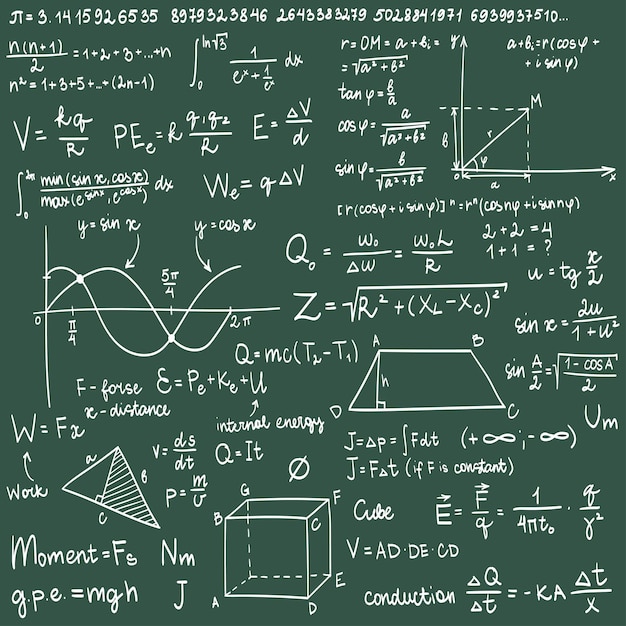 π = 3.1415926535 8979323846 2643383279 5028841971 6939937510...
n(n+1)/2 = 1+2+3+...+n
n² = 1+3+5+...+(2n-1)
∫₀^(ln√3) 1/(eˣ + 1/eˣ) dx
r = OM = a + bi =
= √(a² + b²)
tan φ = b/a
cos φ = a/√(a² + b²)
sin φ = b/√(a² + b²)
y
M
b
r
φ
o
a
x
a + bi = r(cos φ +
+ i sin φ)
V = kq/R
PEe = k q₁q₂/R
E = ΔV/d
∫₀^(2π) min(sin x, cos x)/max(e^(sin x), e^(cos x)) dx
We = qΔV
[r(cos φ + i sin φ)]ⁿ = rⁿ(cos nφ + i sin nφ)
y = sin x
y = cos x
0
π/4
5π/4
2π
Q₀ = ω₀/Δω = ω₀L/R
2 + 2 = 4
1 + 1 = ?
u = tg x/2
Z = √(R² + (XL - XC)²)
sin x = 2u/(1 + u²)
Q = mc(T₂ - T₁)
A
B
h
D
C
sin A/2 = √((1 - cos A)/2)
F - forse
x - distance
Ɛ = Pe + Ke + U
internal energy
Um
W = Fx
Work
a
b
c
V = ds/dt
Q = It
J = Δp = ∫Fdt
(+∞; -∞)
J = FΔt (if F is constant)
∅
Cube
V = AD·DE·CD
G
F
B
C
E
A
D
Moment = Fs
Nm
g.p.e. = mgh
J
conduction ΔQ/Δt = -KA Δt/x